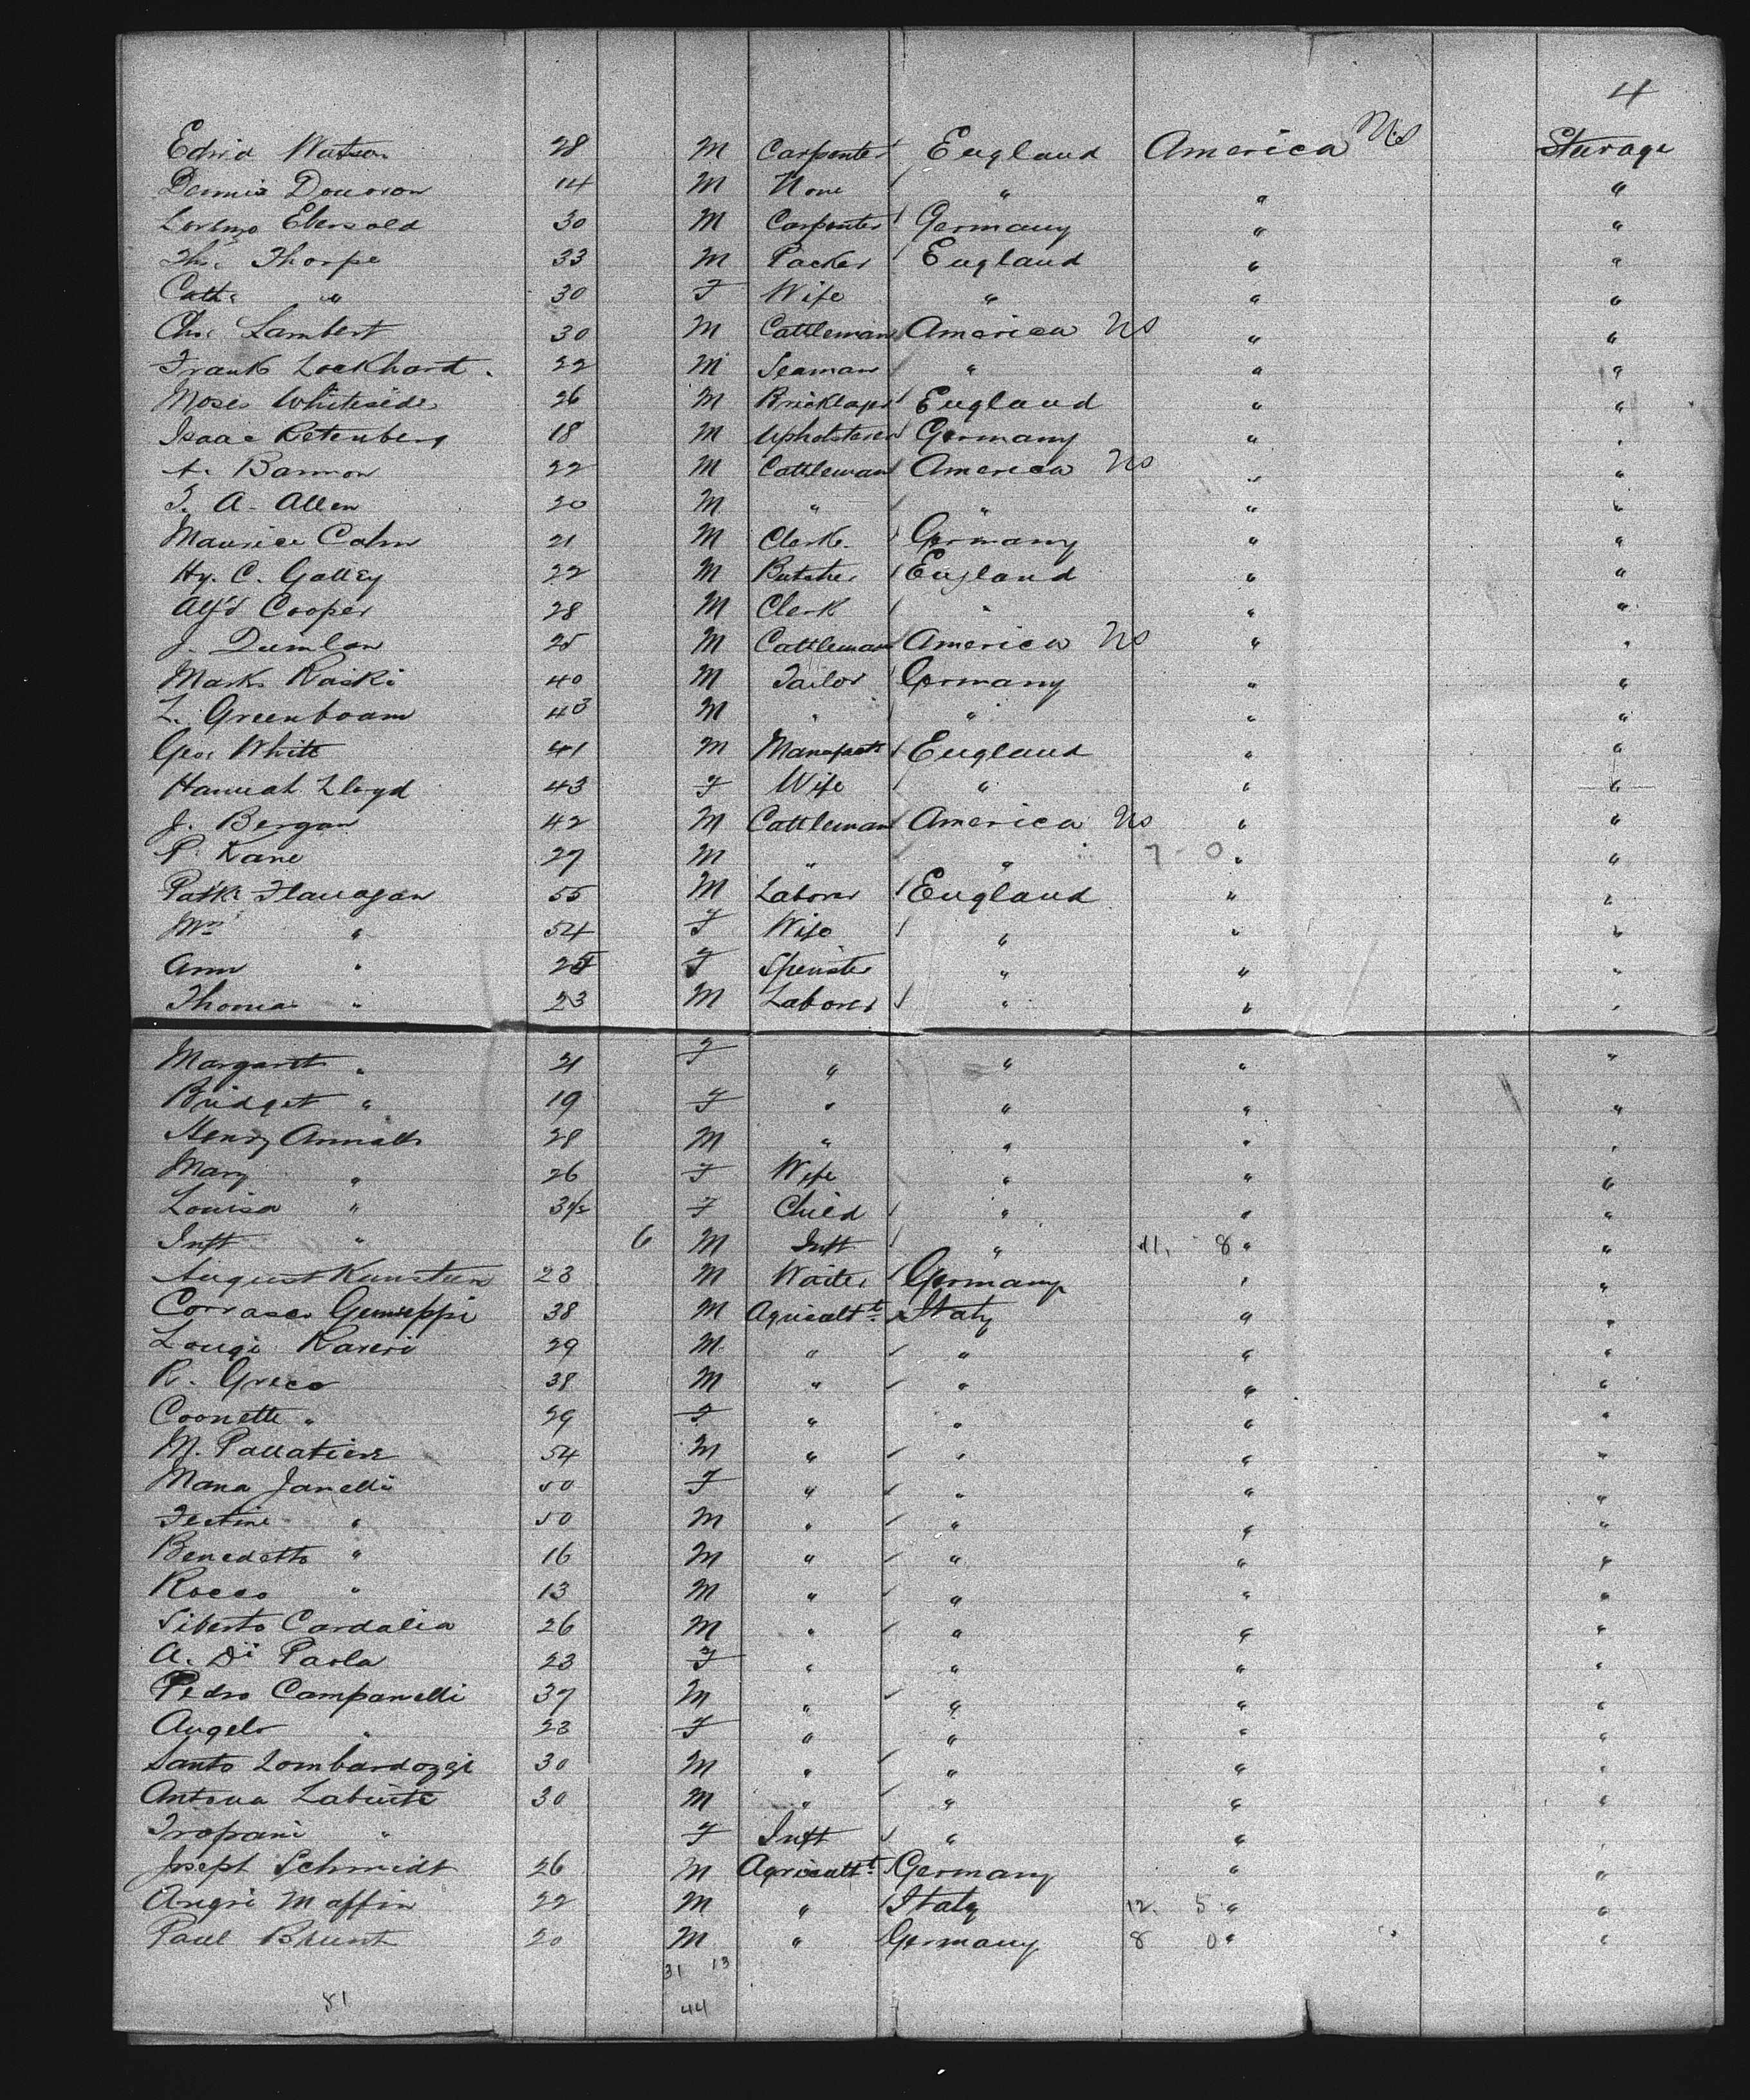 4
Edwd Watson 28 M Carpenter England America US Steerage
Dennis Donovan 14 M None " " "
Lorenzo Ebersold 30 M Carpenter Germany " "
Ths. Thorpe 33 M Packer England " "
Cath. " 30 F Wife " " "
Chs. Lambert 30 M Cattleman America US " "
Frank Lockhart. 22 M Seaman " " "
Moses Whiteside 26 M Bricklayer England " "
Isaac Retenberg 18 M Upholsterer Germany " "
A. Bannon 22 M Cattleman America US " "
T. A. Allen 20 M " " " "
Maurice Cahn 21 M Clerk Germany " "
Hy. C. Galley 22 M Butcher England " "
Alfd Cooper 28 M Clerk " " "
J. Dumlan 25 M Cattleman America US " "
Marks Raski 40 M Tailor Germany " "
L. Greenboam 43 M " " " "
Geo. White 41 M Manufactr England " "
Hannah Lloyd 43 F Wife " " "
J. Bergan 42 M Cattleman America US " "
P. Kane 27 M " " 7 - 0 " "
Patk. Flanagan 55 M Laborer England " "
Mrs " 54 F Wife " " "
Ann " 25 F Spinster " " "
Thomas " 23 M Laborer " " "
Margaret " 21 F " " " "
Bridget " 19 F " " " "
Henry 28 M " " " "
Mary " 26 F Wife " " "
Louisa " 3 1/2 F Child " " "
Inft " 6 M Inft " 11. 8 " "
August Kunsten 23 M Waiter Germany " "
Corrasco Genseppi 38 M Agricultt Italy " "
Lougi Raneri 29 M " " " "
R. Greco 38 M " " " "
Coonette " 29 F " " " "
M. Pallatiere 54 M " " " "
Maria Janelli 50 F " " " "
Festine " 50 M " " " "
Benedetto " 16 M " " " "
Rocco " 13 M " " " "
Siberto Cardalia 26 M " " " "
A. Di Paola 23 F " " " "
Pedro Campanelli 37 M " " " "
Angelo " 23 F " " " "
Santo Lombardozzi 30 M " " " "
Antona Labuite 30 M " " " "
Trapani " F Inft " " "
Joseph Schmidt 26 M Agricultt Germany " "
Angri Maffin 22 M " Italy 12. 5 " "
Paul Brunt 20 M " Germany 8 0 " "
31 13
81 44